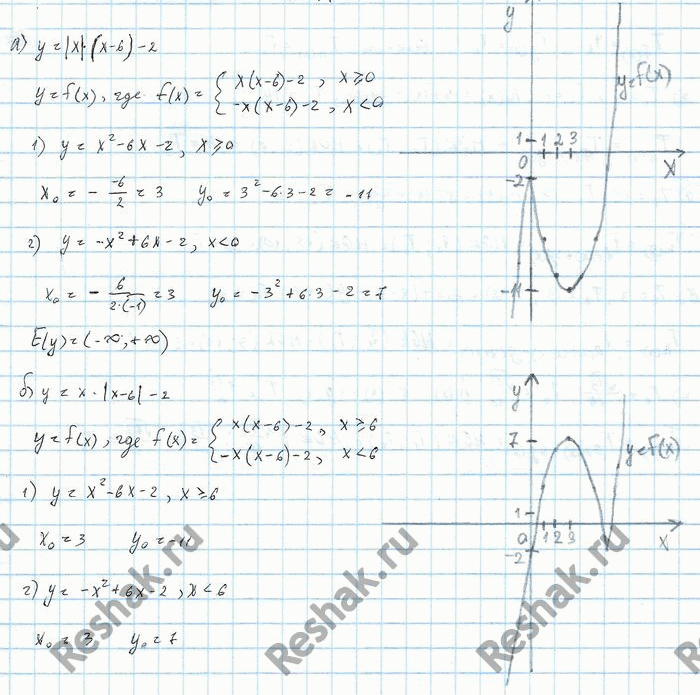 а) y = |x|·(x-6) - 2
y = f(x), где f(x) = { x(x-6)-2, x ≥ 0
-x(x-6)-2, x < 0
1) y = x² - 6x - 2, x ≥ 0
x₀ = - -6/2 = 3    y₀ = 3² - 6·3 - 2 = -11
2) y = -x² + 6x - 2, x < 0
x₀ = - 6/2·(-1) = 3    y₀ = -3² + 6·3 - 2 = 7
E(y) = (-∞; +∞)
y
y=f(x)
1
1 2 3
0
x
-2
-11
б) y = x·|x-6| - 2
y = f(x), где f(x) = { x(x-6)-2, x ≥ 6
-x(x-6)-2, x < 6
1) y = x² - 6x - 2, x ≥ 6
x₀ = 3    y₀ = -11
2) y = -x² + 6x - 2, x < 6
x₀ = 3    y₀ = 7
y
7
y=f(x)
1
0 1 2 3
x
-2
Reshak.ru
Reshak.ru
Reshak.ru